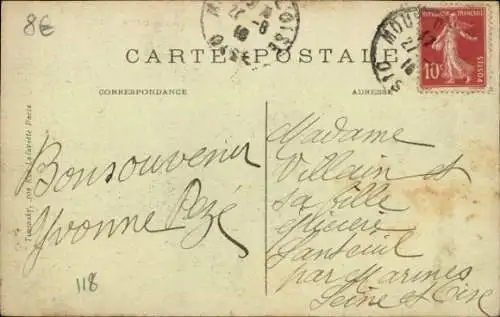 8€
CARTE POSTALE
CORRESPONDANCE
ADRESSE
RÉPUBLIQUE FRANÇAISE
10c
POSTES
Bonsouvenir
Yvonne Pezé
118
Madame
Villain et
sa fille
Santeuil
par Marines
Seine et Oise
Paris